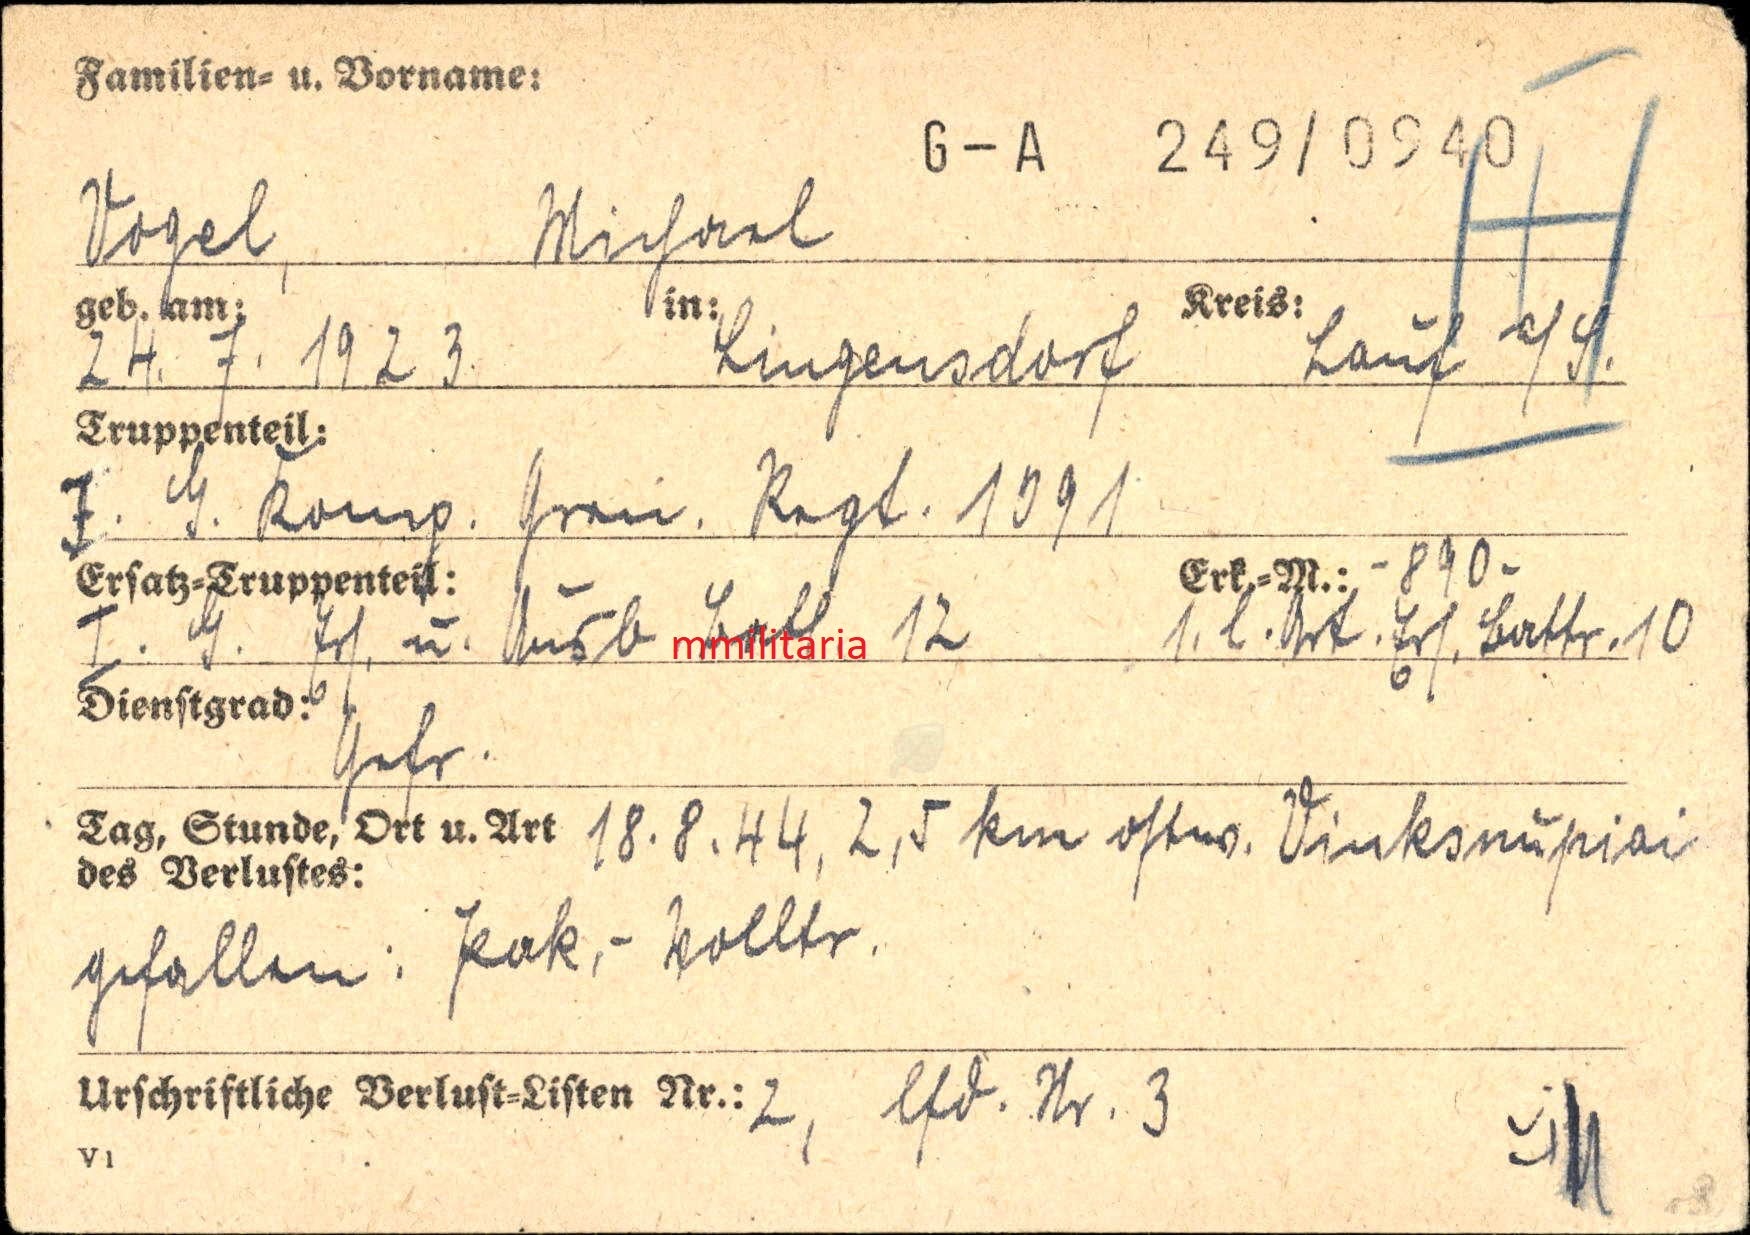 Familien- u. Vorname:
G-A 249/0940
H
Vogel, Michael
geb. am: in: Kreis:
24. 7. 1923. Lingensdorf Lauf a/
Truppenteil:
7. G. Komp. Gren. Regt. 1091
Ersatz-Truppenteil: Erk.-M.: -890-
I. G. Ers. u. Ausb Batl 12 1. l. Art. Ers. Battr. 10
mmilitaria
Dienstgrad:
Gefr.
Tag, Stunde, Ort u. Art 18.8.44, 2,5 km ostw. Vinksnupiai
des Verlustes:
gefallen: Pak,- Volltr.
Urschriftliche Verlust-Listen Nr.: 2, lfd. Nr. 3
V1